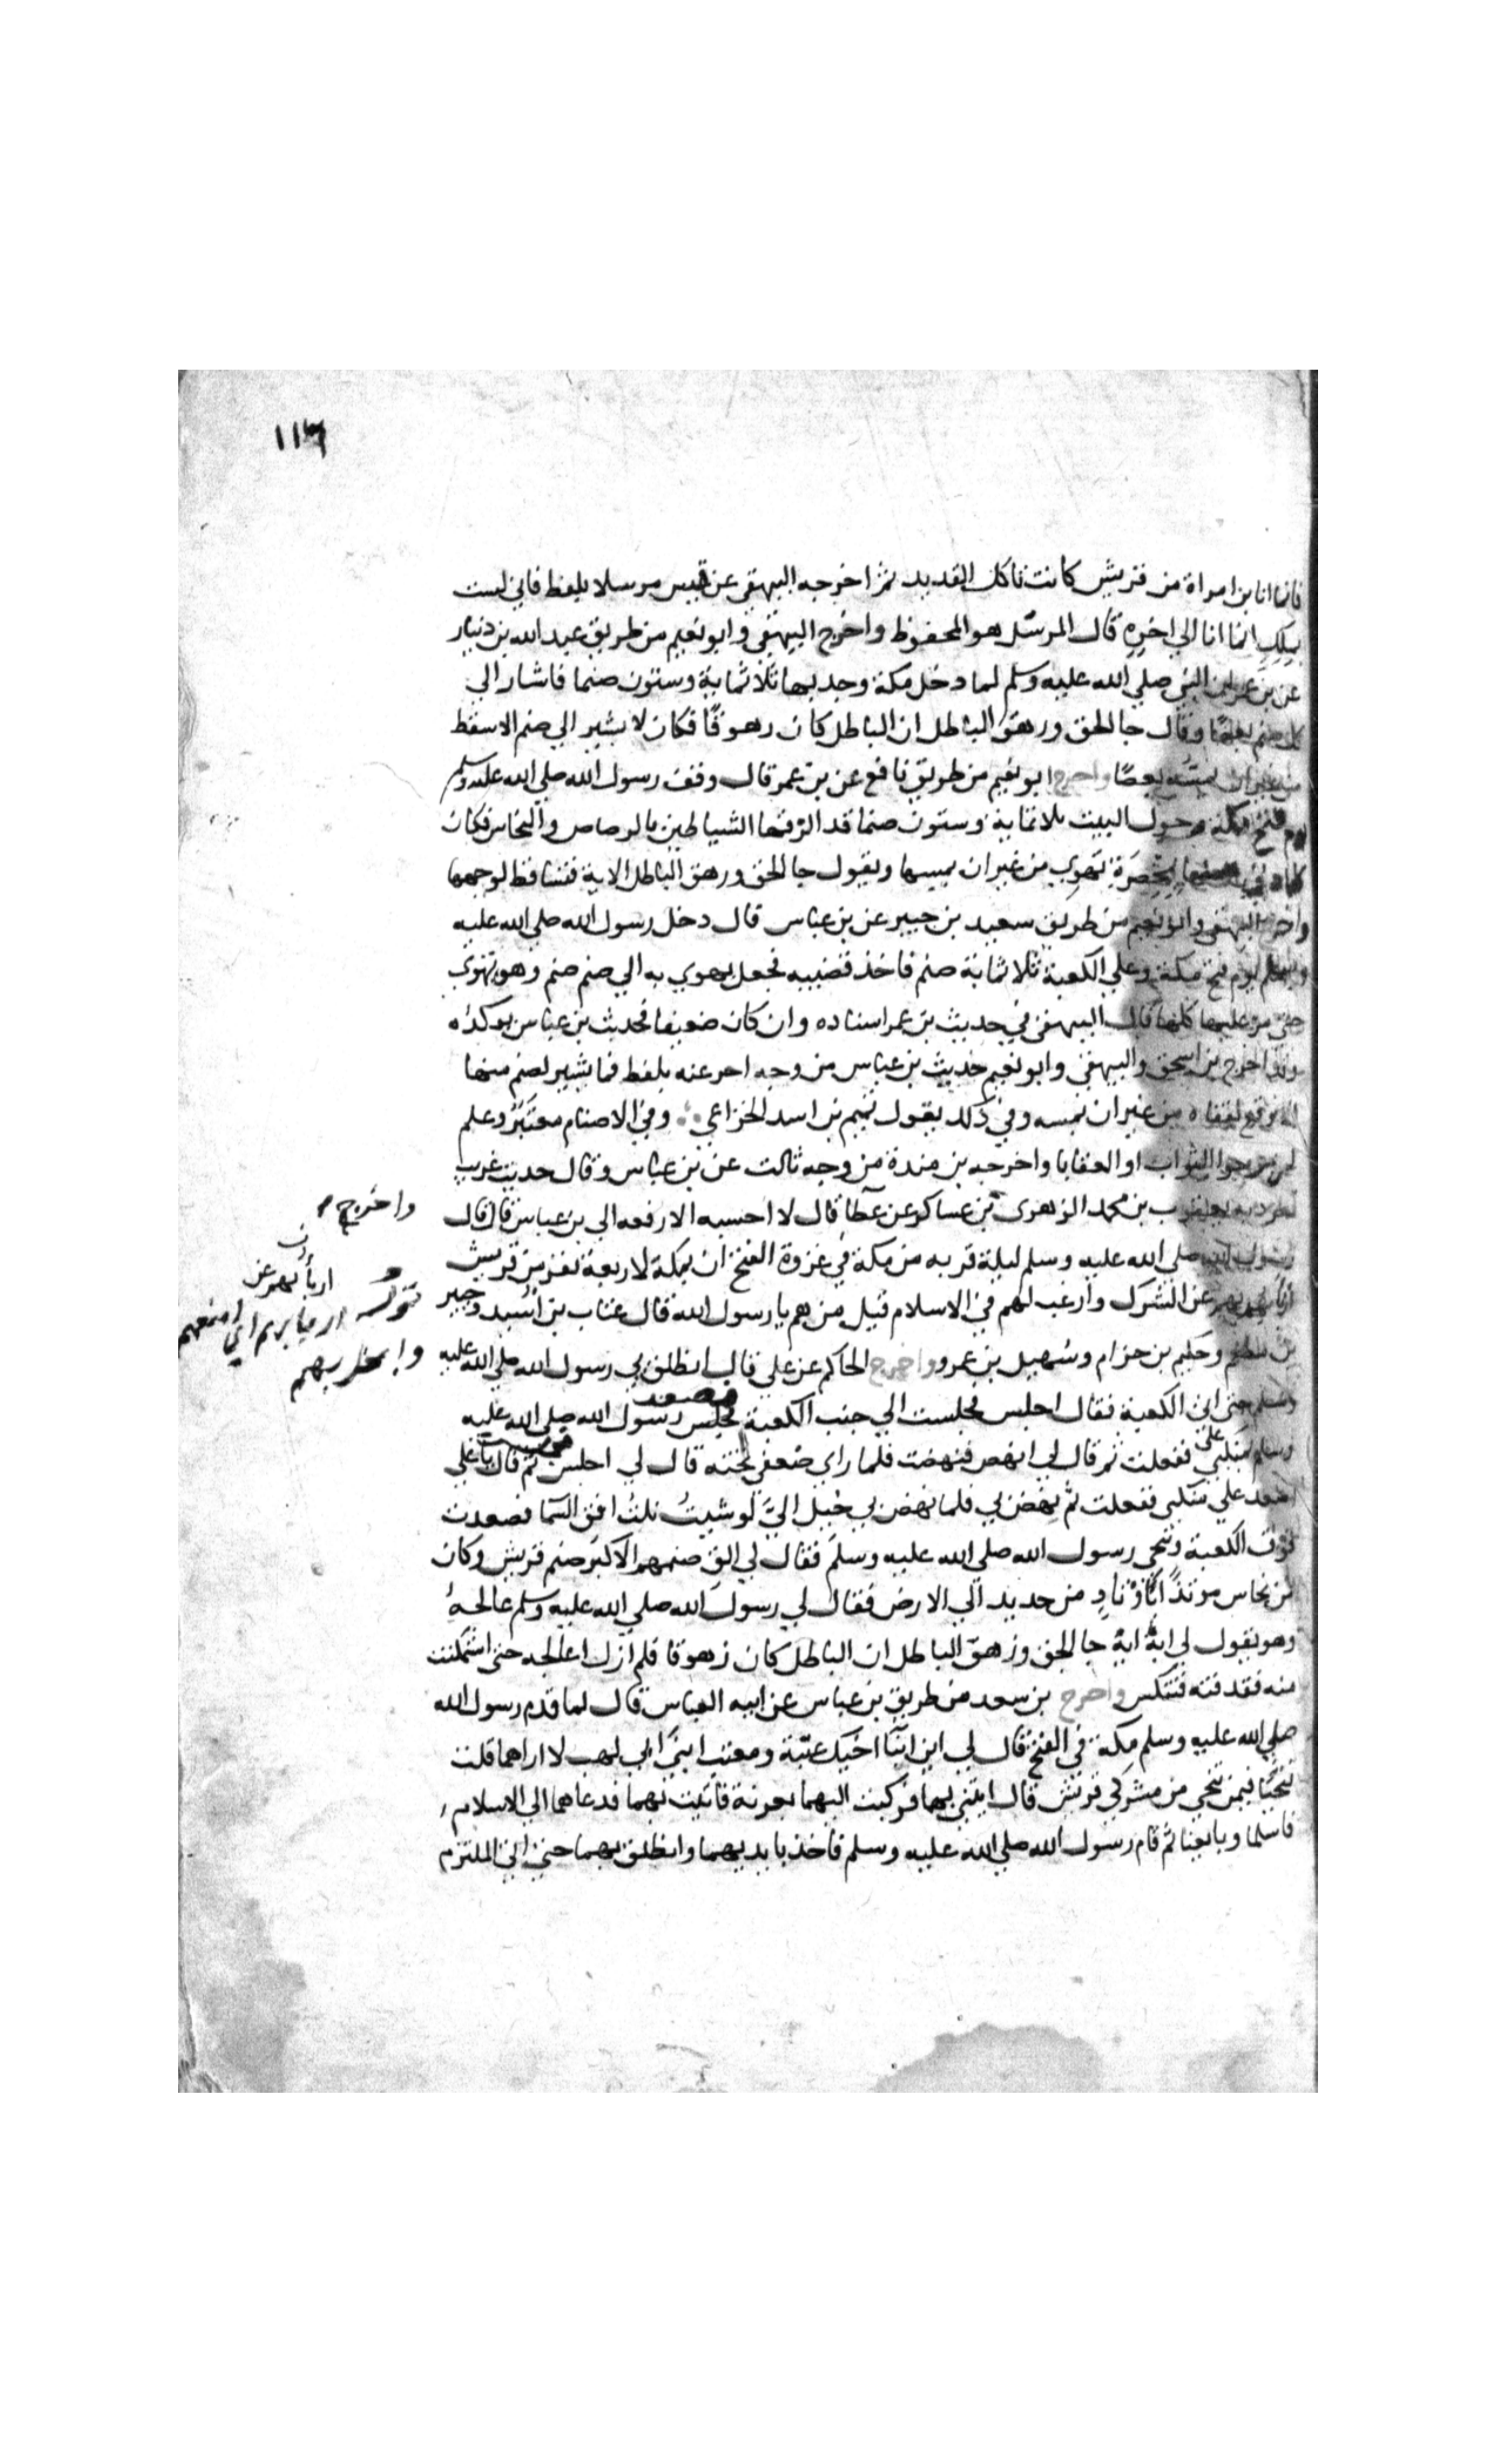 ١١٦
فانما انا بن امراة من قريش كانت تاكل القديد ثم اخرجه البيهقي عن قيس مرسلا بلفظ فاني لست
بملك انما انا الي اخره قال المرسل هو المحفوظ واخرج البيهقي وابو نعيم من طريق عبد الله بن دينار
عن بن عمر ان النبي صلي الله عليه وسلم لما دخل مكة وجد بها ثلاثماية وستون صنما فاشار الي
كل صنم بعصًا وقال جا الحق وزهق الباطل ان الباطل كان زهوقًا فكان لا يشير الي صنم الا سقط
من غير ان يمسه بعصًا واخرج ابو نعيم من طريق نافع عن بن عمر قال وقف رسول الله صلي الله عليه وسلم
يوم فتح مكة وحول البيت ثلاثماية وستون صنما قد الزقها الشياطين بالرصاص والنحاس فكان
كلما دني منها بمخصرة تهوي من غير ان يمسها ويقول جا الحق وزهق الباطل الاية فتساقط لوجهها
واخرج البيهقي وابو نعيم من طريق سعيد بن جبير عن بن عباس قال دخل رسول الله صلي الله عليه
وسلم يوم فتح مكة وعلي الكعبة ثلاثماية صنم فاخذ قضيبه فجعل يهوي به الي صنم صنم وهو تهوي
حتي مر عليها كلها قال البيهقي في حديث بن عمر اسناده وان كان ضعيفا فحديث بن عباس يوكده
وقد اخرج بن اسحق والبيهقي وابو نعيم حديث بن عباس من وجه اخر عنه بلفظ فما يشير لصنم منها
الا وقع لقفاه من غير ان يمسه وفي ذلك يقول تميم بن اسد الخزاعي وفي الاصنام معتبر وعلم
لمن يرجوا الثواب او العقابا واخرجه بن مندة من وجه ثالث عن بن عباس وقال حديث غريب
تفرد به يعقوب بن محمد الزهري بن عساكر عن عطا قال لا احسبه الا رفعه الي بن عباس قال قال
رسول الله صلي الله عليه وسلم ليلة قربه من مكة في غزوة الفتح ان بمكة لاربعة نفر من قريش
اربا بهم عن الشرك وارغب لهم في الاسلام قيل من هم يا رسول الله قال عتاب بن اسيد وجبير
بن مطعم وحكيم بن حزام وسهيل بن عمرو واخرج الحاكم عن علي قال انطلق بي رسول الله صلي الله عليه
وسلم حتي اتي الكعبة فقال اجلس فجلست الي جنب الكعبة فصعد رسول الله صلي الله عليه
وسلم علي منكبي ففعلت ثم قال لي انهض فنهضت فلما راي ضعفي تحته قال لي اجلس ثم قال يا علي
اصعد علي منكبي ففعلت ثم نهض بي فلما نهض بي خيل الي لو شيت نلت افق السما فصعدت
فوق الكعبة وتنحي رسول الله صلي الله عليه وسلم فقال لي الق صنمهم الاكبر صنم قريش وكان
من نحاس موتدًا باوتاد من حديد الي الارض فقال لي رسول الله صلي الله عليه وسلم عالجه
وهو يقول لي ايه ايه جا الحق وزهق الباطل ان الباطل كان زهوقا فلم ازل اعالجه حتي استمكنت
منه فقذفته فتنكس واخرج بن سعد من طريق بن عباس عن ابيه العباس قال لما قدم رسول الله
صلي الله عليه وسلم مكة في الفتح قال لي اين ابنا اخيك عتبة ومعتب ابني ابي لهب لا اراهما قلت
تنحيا فيمن تنحي من مشركي قريش قال ايتني بهما فركبت اليهما بعرنة فاتيت بهما فدعاهما الي الاسلام
فاسلما وبايعنا ثم قام رسول الله صلي الله عليه وسلم فاخذ بايديهما وانطلق بهما حتي اتي الملتزم
واخرج
اربأ بهم عن
قوله اربا بهم اي امنعهم